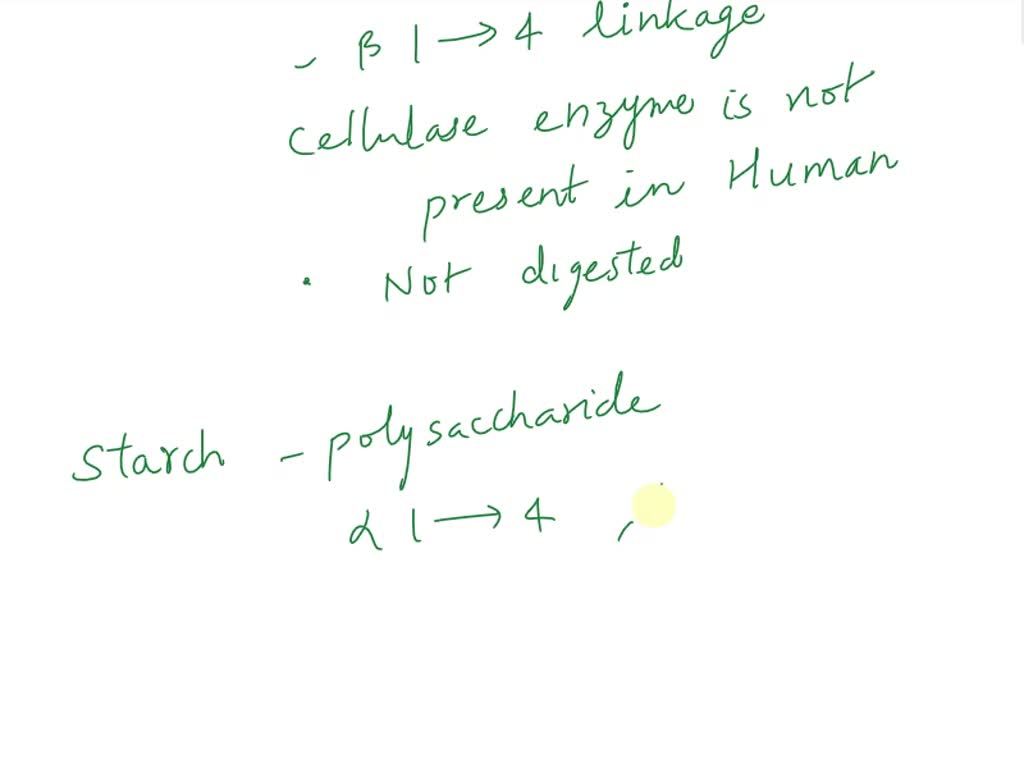 - β 1 → 4 linkage
cellulase enzyme is not
present in Human
• Not digested
Starch - polysaccharide
α 1 → 4 ,